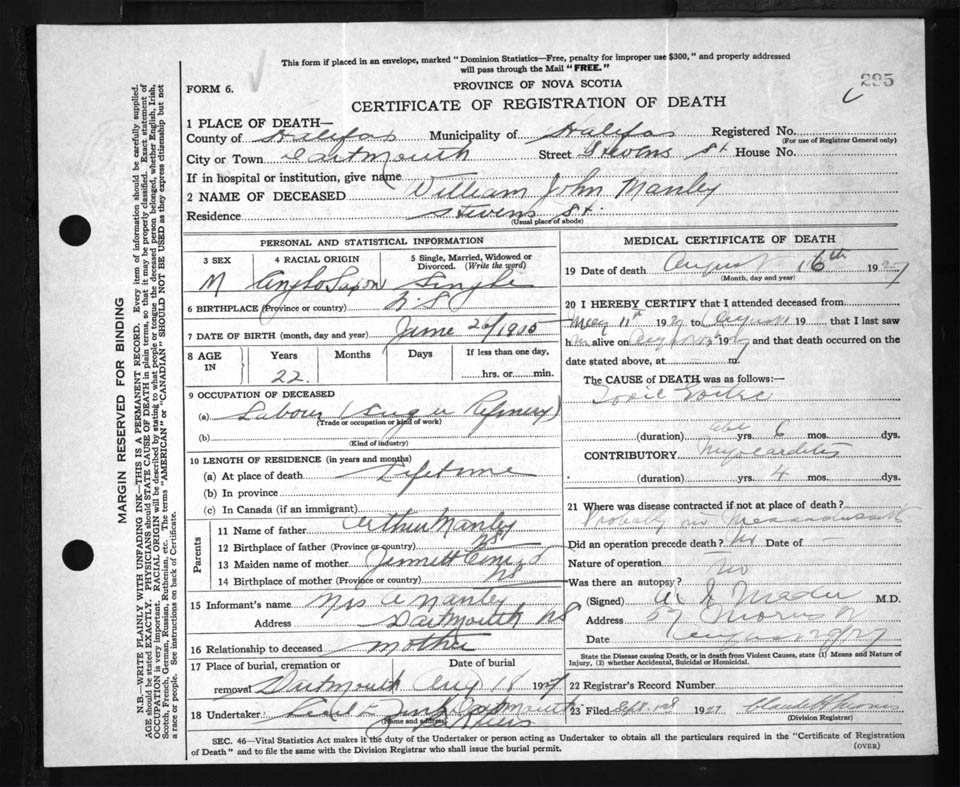 This form if placed in an envelope, marked "Dominion Statistics—Free, penalty for improper use $300," and properly addressed
will pass through the Mail "FREE."
295
FORM 6.
PROVINCE OF NOVA SCOTIA
CERTIFICATE OF REGISTRATION OF DEATH
1 PLACE OF DEATH—
County of Halifax Municipality of Halifax Registered No.
(For use of Registrar General only)
City or Town Dartmouth Street Stevens St House No.
If in hospital or institution, give name
2 NAME OF DECEASED William John Manley
Residence Stevens St.
(Usual place of abode)
PERSONAL AND STATISTICAL INFORMATION
3 SEX 4 RACIAL ORIGIN 5 Single, Married, Widowed or Divorced. (Write the word)
M Anglo Saxon Single
6 BIRTHPLACE (Province or country) N.S
7 DATE OF BIRTH (month, day and year) June 26/1905
8 AGE IN Years Months Days If less than one day,
22. hrs. or min.
9 OCCUPATION OF DECEASED
(a) Labour (Sugar Refinery)
(Trade or occupation or kind of work)
(b)
(Kind of industry)
10 LENGTH OF RESIDENCE (in years and months)
(a) At place of death Lifetime
(b) In province
(c) In Canada (if an immigrant)
Parents
11 Name of father Arthur Manley
12 Birthplace of father (Province or country) NS
13 Maiden name of mother
14 Birthplace of mother (Province or country) NS
15 Informant's name Mrs A Manley
Address Dartmouth NS
16 Relationship to deceased Mother
17 Place of burial, cremation or Date of burial
removal Dartmouth Aug 18 1927
18 Undertaker Dartmouth
(Name and address)
MEDICAL CERTIFICATE OF DEATH
19 Date of death August 16th 1927
(Month, day and year)
20 I HEREBY CERTIFY that I attended deceased from
May 11th 1927 to August 19 that I last saw
h alive on 1927 and that death occurred on the
date stated above, at m.
The CAUSE OF DEATH was as follows:—
Toxic Goitre
(duration) yrs. 6 mos. dys.
CONTRIBUTORY Myocarditis
(duration) yrs. 4 mos. dys.
21 Where was disease contracted if not at place of death?
Probably in Massachusetts
Did an operation precede death? No Date of —
Nature of operation —
Was there an autopsy? No
(Signed) M.D.
Address 57 Morris
Date
State the Disease causing Death, or in death from Violent Causes, state (1) Means and Nature of
Injury, (2) whether Accidental, Suicidal or Homicidal.
22 Registrar's Record Number
23 Filed Sept 1927
(Division Registrar)
SEC. 46—Vital Statistics Act makes it the duty of the Undertaker or person acting as Undertaker to obtain all the particulars required in the "Certificate of Registration
of Death" and to file the same with the Division Registrar who shall issue the burial permit.
(OVER)
MARGIN RESERVED FOR BINDING
N.B.—WRITE PLAINLY WITH UNFADING INK—THIS IS A PERMANENT RECORD. Every item of information should be carefully supplied.
AGE should be stated EXACTLY. PHYSICIANS should STATE CAUSE OF DEATH in plain terms, so that it may be properly classified. Exact statement of
OCCUPATION is very important. RACIAL ORIGIN will be described by stating to what people or tongue the deceased person belonged, whether English, Irish,
Scotch, French, German, Russian, Ruthenian, etc. The terms "AMERICAN" or "CANADIAN" SHOULD NOT BE USED as they express citizenship but not
a race or people. See instructions on back of Certificate.